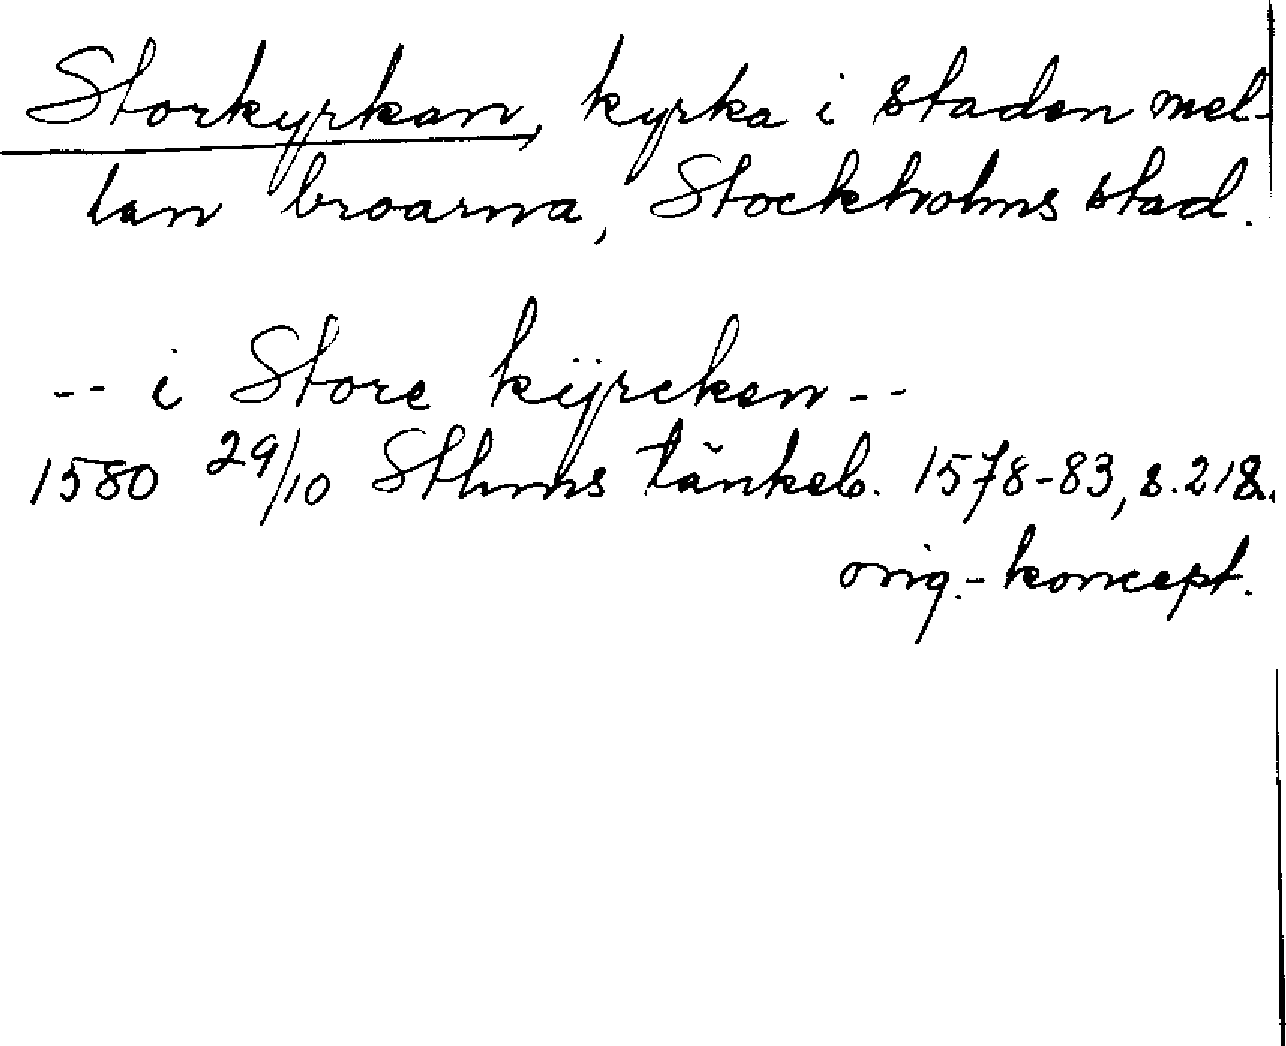 Storkyrkan, kyrka i staden mel-
lan broarna, Stockholms stad.
-- i Store kijrcken --
1580 29/10 Sthms tänkeb. 1578-83, s. 218.
orig.-koncept.